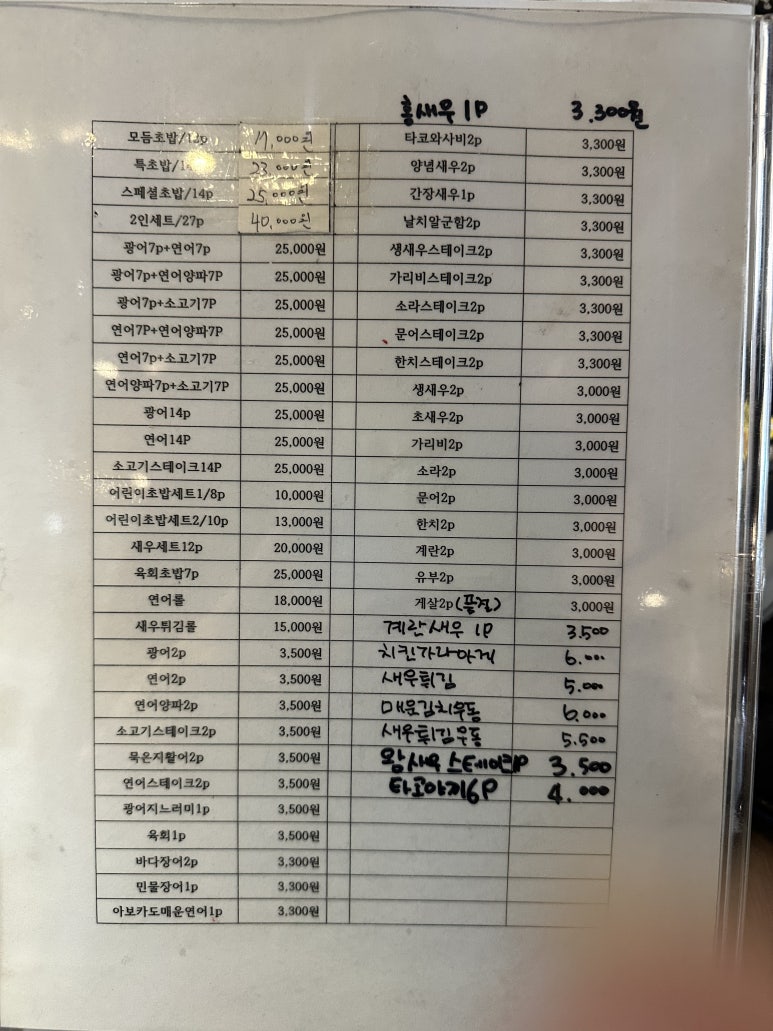 홍새우 1P 3.300원
모듬초밥/12p 17,000원
특초밥/1 23,000원
스페셜초밥/14p 25,000원
2인세트/27p 40,000원
광어7p+연어7p 25,000원
광어7p+연어양파7P 25,000원
광어7p+소고기7P 25,000원
연어7P+연어양파7P 25,000원
연어7p+소고기7P 25,000원
연어양파7p+소고기7P 25,000원
광어14p 25,000원
연어14P 25,000원
소고기스테이크14P 25,000원
어린이초밥세트1/8p 10,000원
어린이초밥세트2/10p 13,000원
새우세트12p 20,000원
육회초밥7p 25,000원
연어롤 18,000원
새우튀김롤 15,000원
광어2p 3,500원
연어2p 3,500원
연어양파2p 3,500원
소고기스테이크2p 3,500원
묵은지활어2p 3,500원
연어스테이크2p 3,500원
광어지느러미1p 3,500원
육회1p 3,500원
바다장어2p 3,300원
민물장어1p 3,300원
아보카도매운연어1p 3,300원
타코와사비2p 3,300원
양념새우2p 3,300원
간장새우1p 3,300원
날치알군함2p 3,300원
생새우스테이크2p 3,300원
가리비스테이크2p 3,300원
소라스테이크2p 3,300원
문어스테이크2p 3,300원
한치스테이크2p 3,300원
생새우2p 3,000원
초새우2p 3,000원
가리비2p 3,000원
소라2p 3,000원
문어2p 3,000원
한치2p 3,000원
계란2p 3,000원
유부2p 3,000원
게살2p(품절) 3,000원
계란새우 1P 3.500
치킨가라아게 6.000
새우튀김 5.000
매운김치우동 6,000
새우튀김우동 5.500
왕새우스테이크1P 3.500
타코야끼6P 4.000